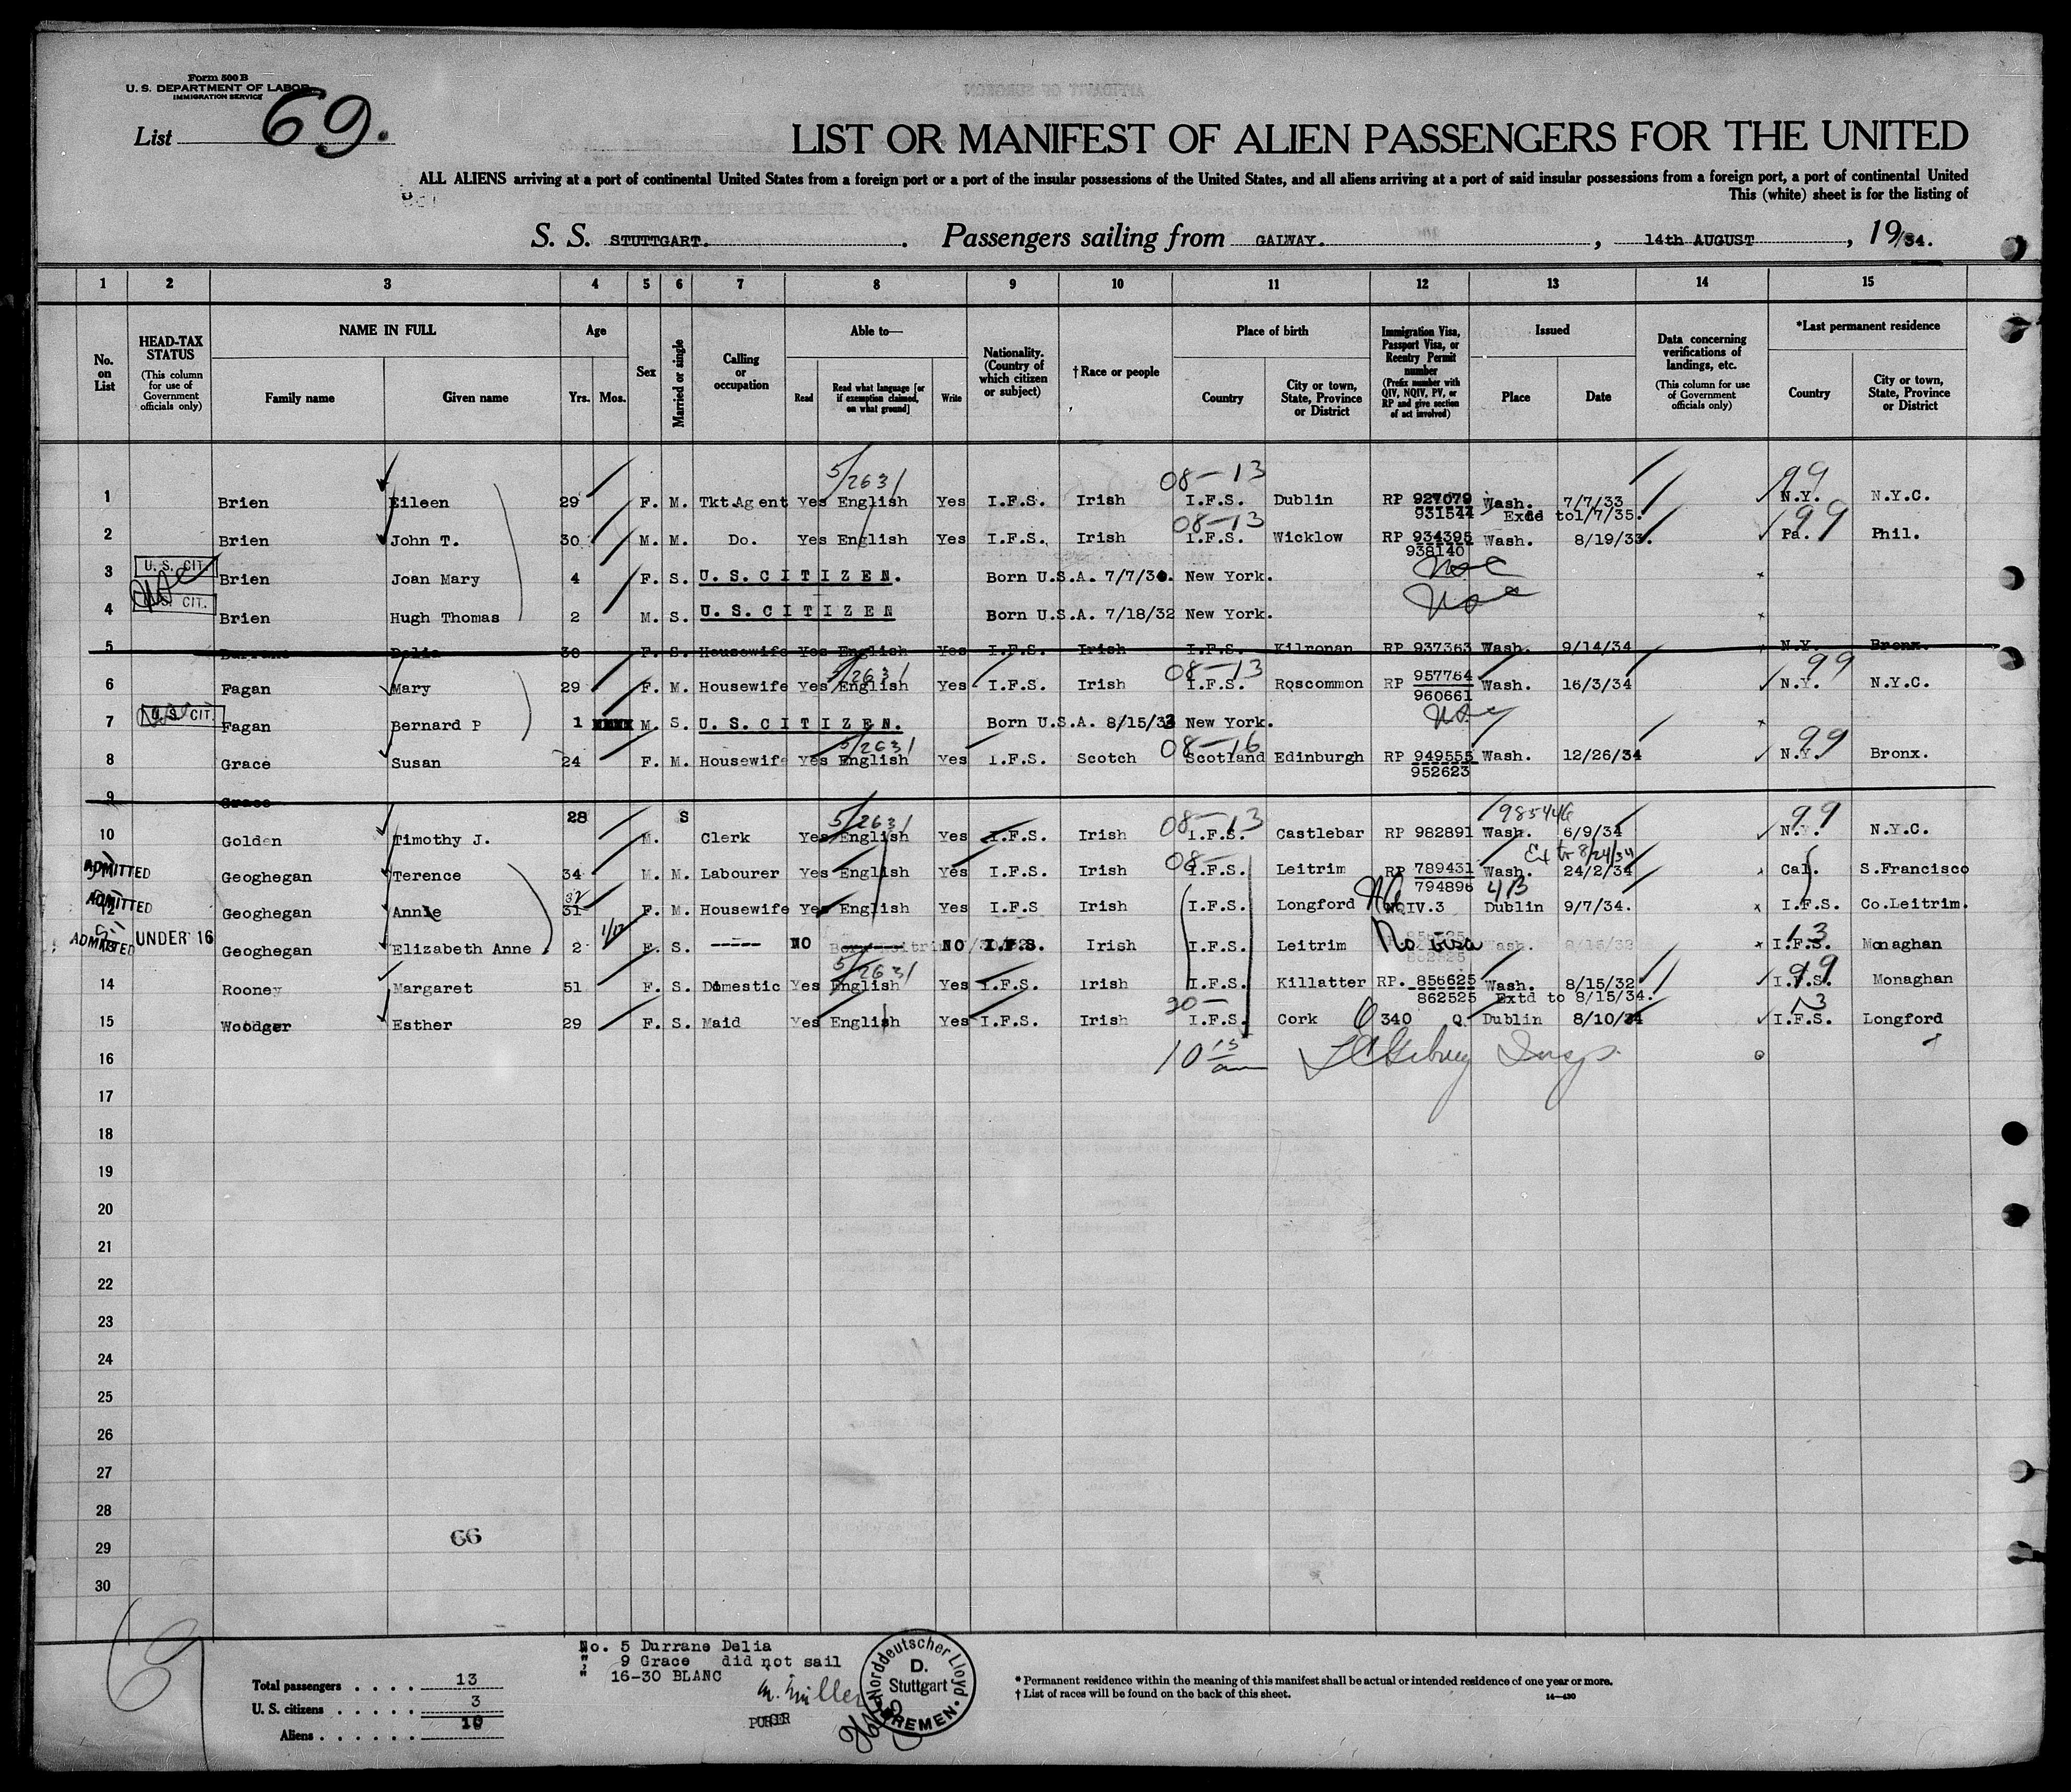 Form 500 B
U. S. DEPARTMENT OF LABOR
IMMIGRATION SERVICE
List 69.
LIST OR MANIFEST OF ALIEN PASSENGERS FOR THE UNITED
ALL ALIENS arriving at a port of continental United States from a foreign port or a port of the insular possessions of the United States, and all aliens arriving at a port of said insular possessions from a foreign port, a port of continental United
This (white) sheet is for the listing of
S. S. STUTTGART. Passengers sailing from GALWAY. , 14th AUGUST , 19/34.
1 2 3 4 5 6 7 8 9 10 11 12 13 14 15
No. on List
HEAD-TAX STATUS (This column for use of Government officials only)
NAME IN FULL Family name Given name
Age Yrs. Mos.
Sex
Married or single
Calling or occupation
Able to— Read Read what language [or if exemption claimed, on what ground] Write
Nationality. (Country of which citizen or subject)
† Race or people
Place of birth Country City or town, State, Province or District
Immigration Visa, Passport Visa, or Reentry Permit number (Prefix number with QIV, NQIV, PV, or RP and give section of act involved)
Issued Place Date
Data concerning verifications of landings, etc. (This column for use of Government officials only)
*Last permanent residence Country City or town, State, Province or District
5/2631 08-13 99
1 Brien Eileen 29 F. M. Tkt.Agent Yes English Yes I.F.S. Irish I.F.S. Dublin RP 927079 Wash. 7/7/33 N.Y. N.Y.C.
931544 Exd to1/7/35.
08-13 99
2 Brien John T. 30 M. M. Do. Yes English Yes I.F.S. Irish I.F.S. Wicklow RP 934395 Wash. 8/19/33. Pa. Phil.
938140
U. S. CIT.
3 Brien Joan Mary 4 F. S. U. S. C I T I Z E N. Born U.S.A. 7/7/30. New York.
U. S. CIT.
4 Brien Hugh Thomas 2 M. S. U. S. C I T I Z E N Born U.S.A. 7/18/32 New York.
5 Durrane Delia 30 F. S. Housewife Yes English Yes I.F.S. Irish I.F.S. Kilronan RP 937363 Wash. 9/14/34 N.Y. Bronx.
5/2631 08-13 99
6 Fagan Mary 29 F. M. Housewife Yes English Yes I.F.S. Irish I.F.S. Roscommon RP 957764 Wash. 16/3/34 N.Y. N.Y.C.
960661
U.S. CIT.
7 Fagan Bernard P 1 M. S. U. S. C I T I Z E N. Born U.S.A. 8/15/33 New York.
5/2631 08-16 99
8 Grace Susan 24 F. M. Housewife Yes English Yes I.F.S. Scotch Scotland Edinburgh RP 949555 Wash. 12/26/34 N.Y. Bronx.
952623
9 Grace
28 S 5/2631 08-13 985446 99
10 Golden Timothy J. M. Clerk Yes English Yes I.F.S. Irish I.F.S. Castlebar RP 982891 Wash. 6/9/34 N.Y. N.Y.C.
08- Ex to 8/24/34
ADMITTED Geoghegan Terence 34 M. M. Labourer Yes English Yes I.F.S. Irish I.F.S. Leitrim RP 789431 Wash. 24/2/34 Cal. S.Francisco
794896 4/3
ADMITTED 12 Geoghegan Annie 31 F. M. Housewife Yes English Yes I.F.S Irish I.F.S. Longford NQIV.3 Dublin 9/7/34. I.F.S. Co.Leitrim.
ADMITTED UNDER 16 Geoghegan Elizabeth Anne 2 1/12 F. S. ----- NO NO I.F.S. Irish I.F.S. Leitrim No Visa 13 I.F.S. Monaghan
5/2631 99
14 Rooney Margaret 51 F. S. Domestic Yes English Yes I.F.S. Irish I.F.S. Killatter RP. 856625 Wash. 8/15/32 I.F.S. Monaghan
862525 Extd to 8/15/34.
20- 13
15 Woodger Esther 29 F. S. Maid Yes English Yes I.F.S. Irish I.F.S. Cork Q 340 Q Dublin 8/10/34 I.F.S. Longford
16 10 15 am
17
18
19
20
21
22
23
24
25
26
27
28
66
29
30
No. 5 Durrane Delia
" 9 Grace did not sail
" 16-30 BLANC
M. Müller
PURSER
Norddeutscher Lloyd
D.
Stuttgart
BREMEN
Total passengers . . . . 13
U. S. citizens . . . . . 3
Aliens . . . . . . 10
* Permanent residence within the meaning of this manifest shall be actual or intended residence of one year or more.
† List of races will be found on the back of this sheet.
14—430